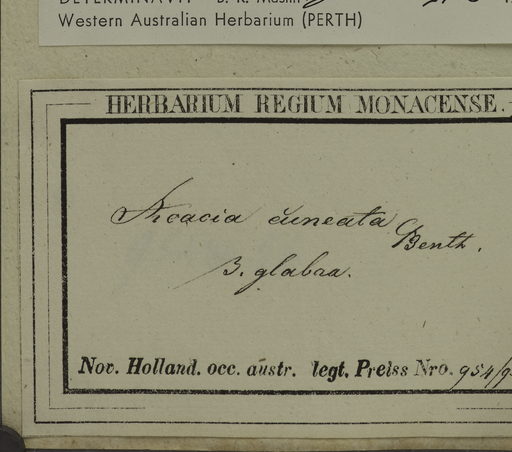 DETERMINAVIT B. R. Maslin
Western Australian Herbarium (PERTH)
HERBARIUM REGIUM MONACENSE.
Acacia cuneata Benth.
β. glabra.
Nov. Holland. occ. austr. legt. Preiss Nro. 954/9